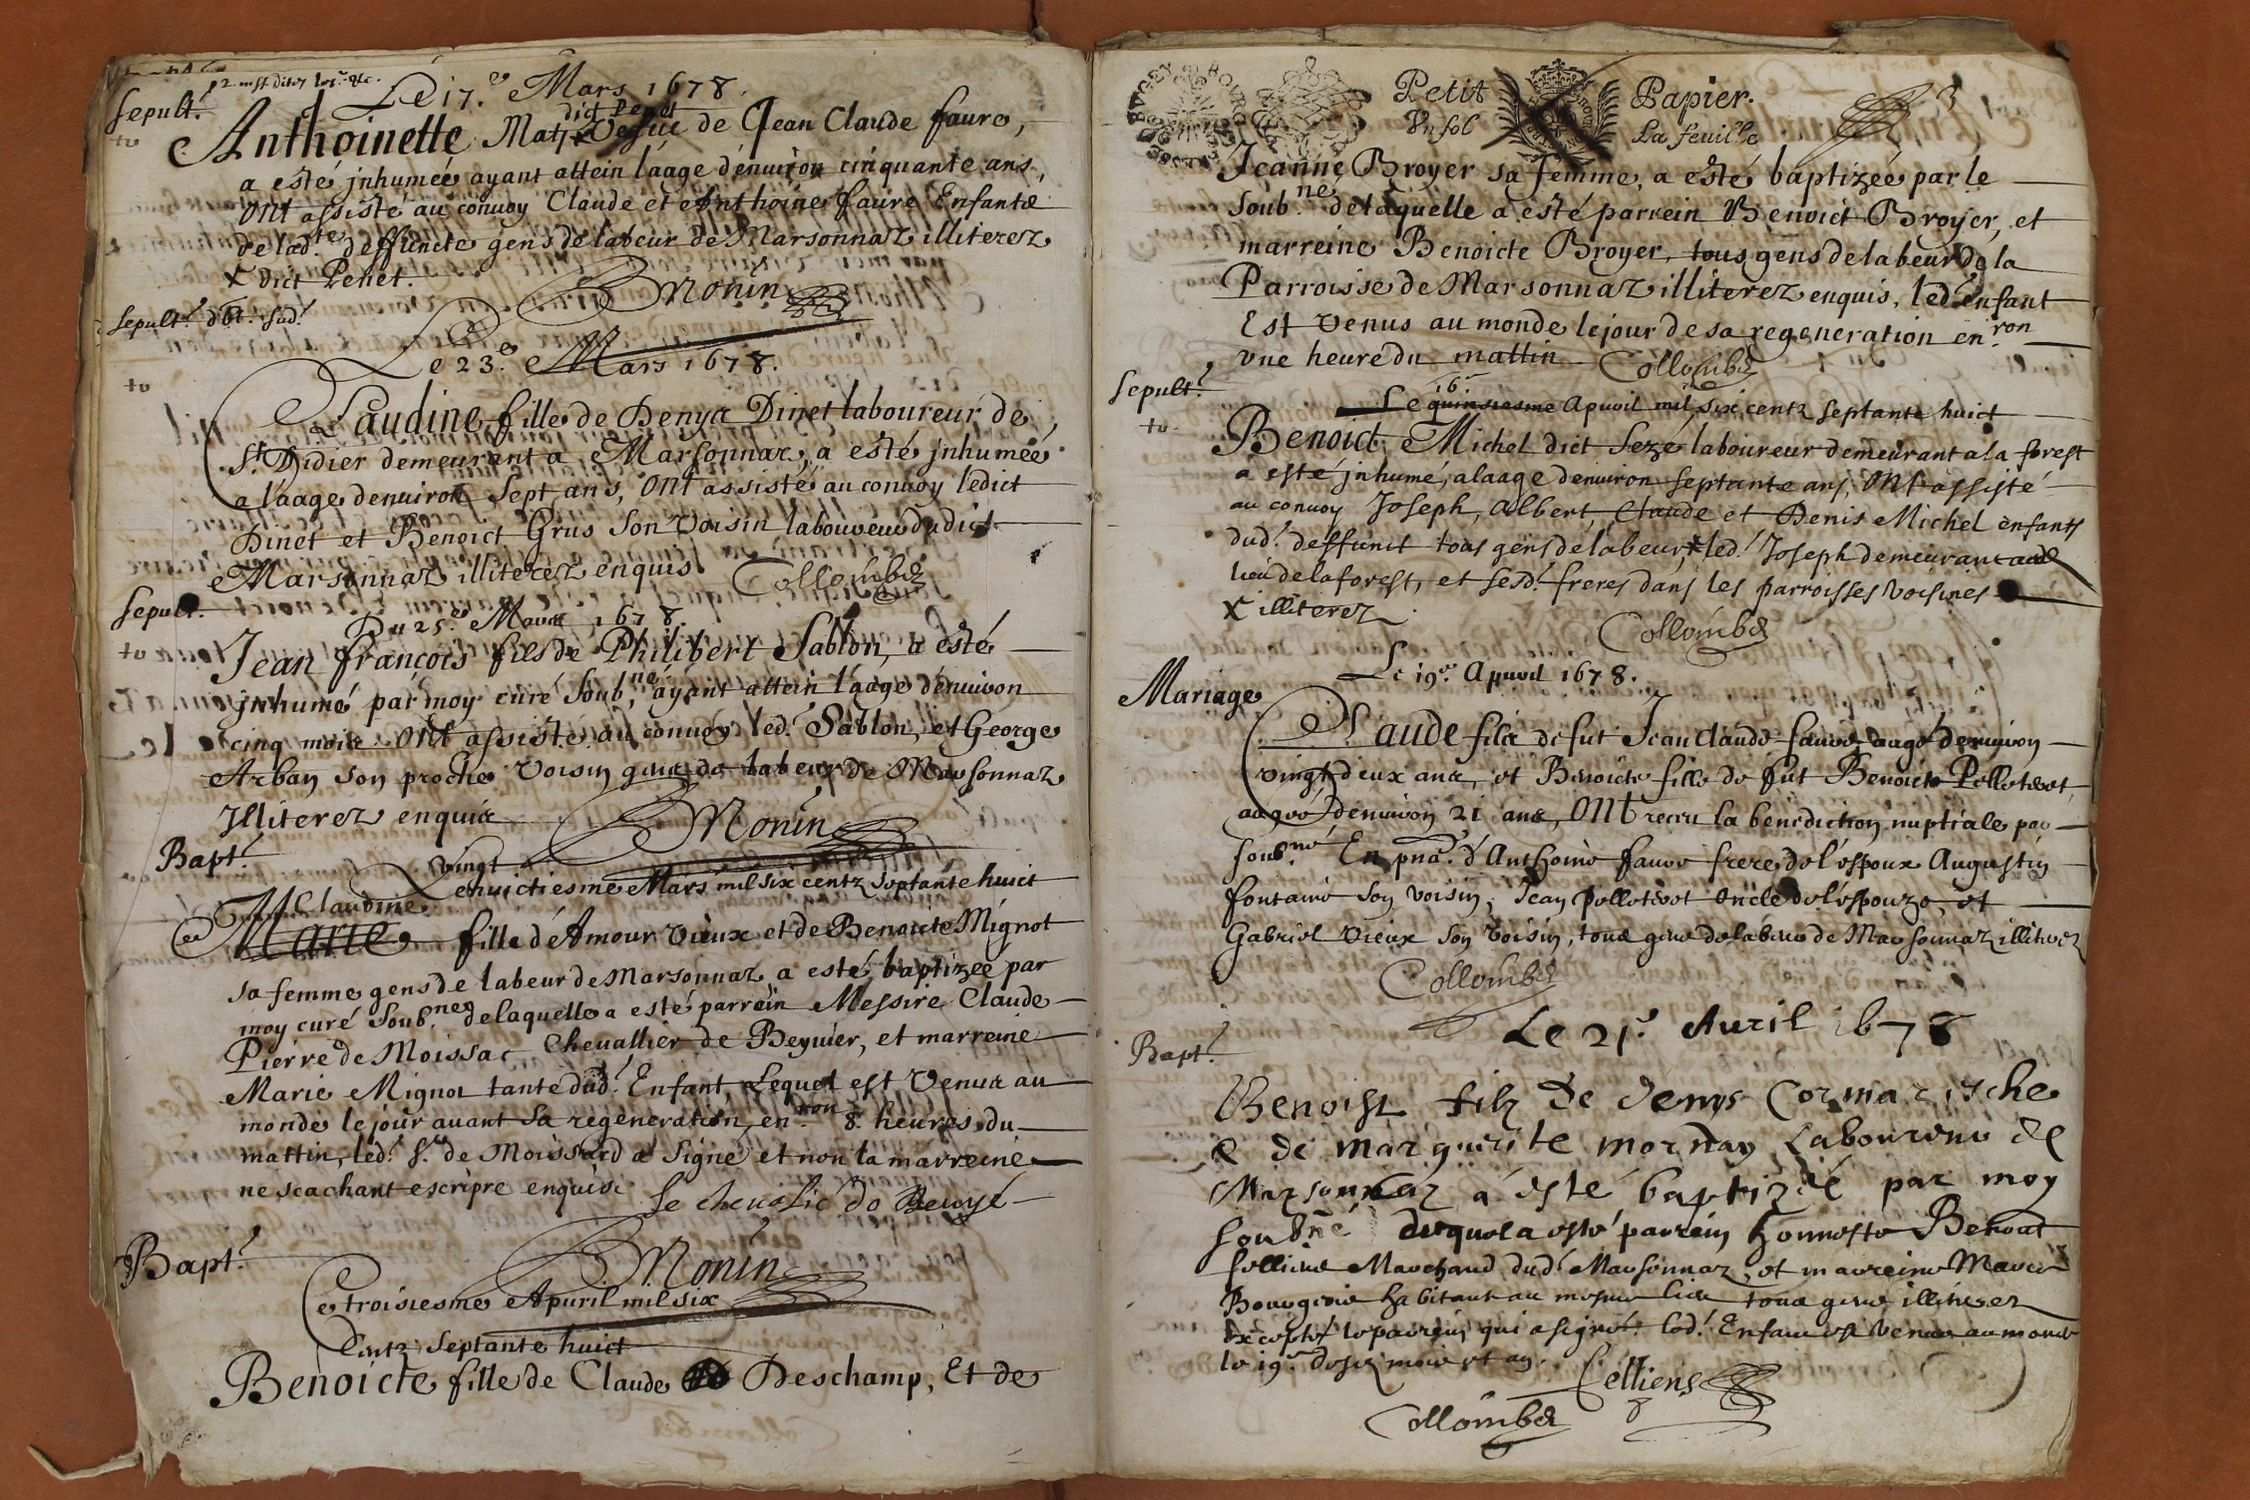 Sepult.
Le 17.e Mars 1678.
dict Penet
Anthoinette Mat de Jean Claude faure,
a esté jnhumée ayant attein l'aage d'enuiron cinquante ans,
ont assisté au conuoy Claude et Anthoine faure Enfants
de lad.te deffuncte gens de labeur de Marsonnaz illiterez
x dict Penet.
Monin
Sepult.
Le 23.e Mars 1678.
Claudine fille de Denys Dinet laboureur de
St. Didier demeurent a Marsonnaz, a esté jnhumée
a l'aage denuiron sept ans, ont assisté au conuoy ledict
Dinet et Benoict Grus son voisin laboureur dudict
Marsonnaz illiterez enquis Collombet
Sepult.
Du 25.e Mars 1678.
Jean françois fils de Philibert Sablon, a esté
jnhumé par moy curé soub.né, ayant attein l'aage denuiron
cinq mois. Ont assisté au conuoy led.t Sablon, et George
Arban son proche voisin gens de labeur de Marsonnaz
Jlliterez enquis
Monin
Bapt.
vingt
Le huictiesme Mars mil six centz septante huict
Claudine
Marie fille d'Amour vieux et de Benoicte Mignot
sa femme gens de labeur de Marsonnaz, a esté baptizée par
moy curé soub.né, de laquelle a esté parrein Messire Claude
Pierre de Moissac Cheuallier de Beyuier, et marreine
Marie Mignot tante dud.t Enfant, Lequel est venus au
monde le jour auant sa regeneration, en.ron 8. heures du
mattin, led.t Sr. de Moissac a signé et non la marreine
ne scachant escripre enquise
le cheualié de Beuyé
Monin
Bapt.
Ce troisiesme Apuril mil six
Centz septante huict
Benoicte fille de Claude Deschamp, Et de
Petit Papier.
Vn sol La feuille
Jeanne Broyer sa femme, a esté baptizée par le
soub.né de laquelle a esté parrein Benoict Broyer, et
marreine Benoicte Broyer, tous gens de labeur de la
Parroisse de Marsonnaz illiterez enquis, led.t enfant
Est venus au monde le jour de sa regeneration en.ron
vne heure du mattin Collombet
Sepult.
16.e
Le quinsiesme Apuril mil six centz septante huict
Benoict Michel dict Sezé laboureur demeurant a la forest
a esté jnhumé, a laage denuiron septante ans, Ont assisté
au conuoy Joseph, Albert, Claude et Denis Michel enfants
dud.t deffunct tous gens de labeur, x led.t Joseph demeurant aud.
lieu de la forest, et sesd.t freres dans les parroisses voisines
x illiterez
Collombet
Le 19.e Apuril 1678.
Mariage
Claude fils de fut Jean Claude faure aagé denuiron
vingt deux ans, et Benoicte fille de fut Benoict Pelleteret
aagée denuiron 21 ans, Ont receu la benediction nuptiale par
soub.né En pn.ce d'Anthoine faure frere de l'espoux Augustin
fontaine son voisin, Jean Pelleteret oncle de l'espouze, et
Gabriel vieux son voisin, tous gens de labeur de Marsonnaz illiterez
Collombet
Bapt.
Le 21.e Auril 1678
Benoist filz de denys Cormareche
& de marguerite mornay Laboureur de
Marsonnaz a esté baptizé par moy
soubné duquel a esté parrein honneste Benoist
Marchand dud.t Marsonnaz, et marreine
habitant au mesme lieu tous gens illiterez
excepté le parrein qui a signé. led.t Enfant est venus au monde
le 19.e desd. mois et an.
Collombet